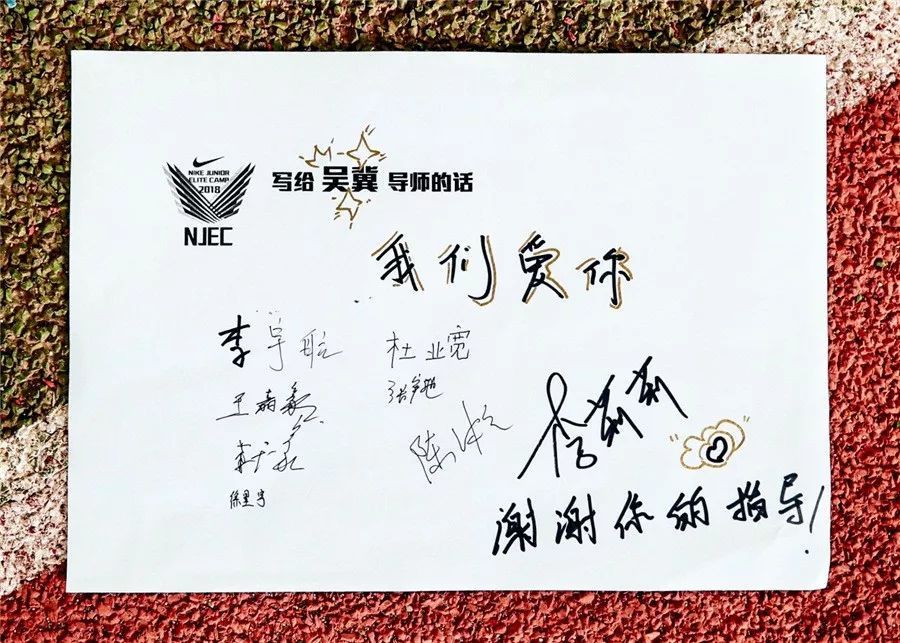 NIKE JUNIOR
ELITE CAMP
2018
NJEC
写给 吴冀 导师的话
我们爱你
李宇航
杜业宽
王嘉鑫
徐昱宇
李莉莉
谢谢你的指导!